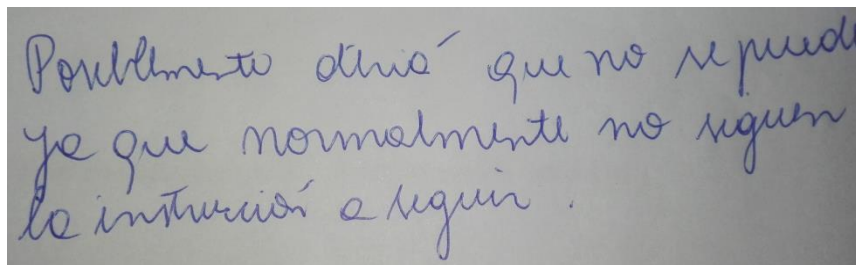 Posiblemente diria que no se puede
ya que normalmente no siguen
la instrucción a seguir.